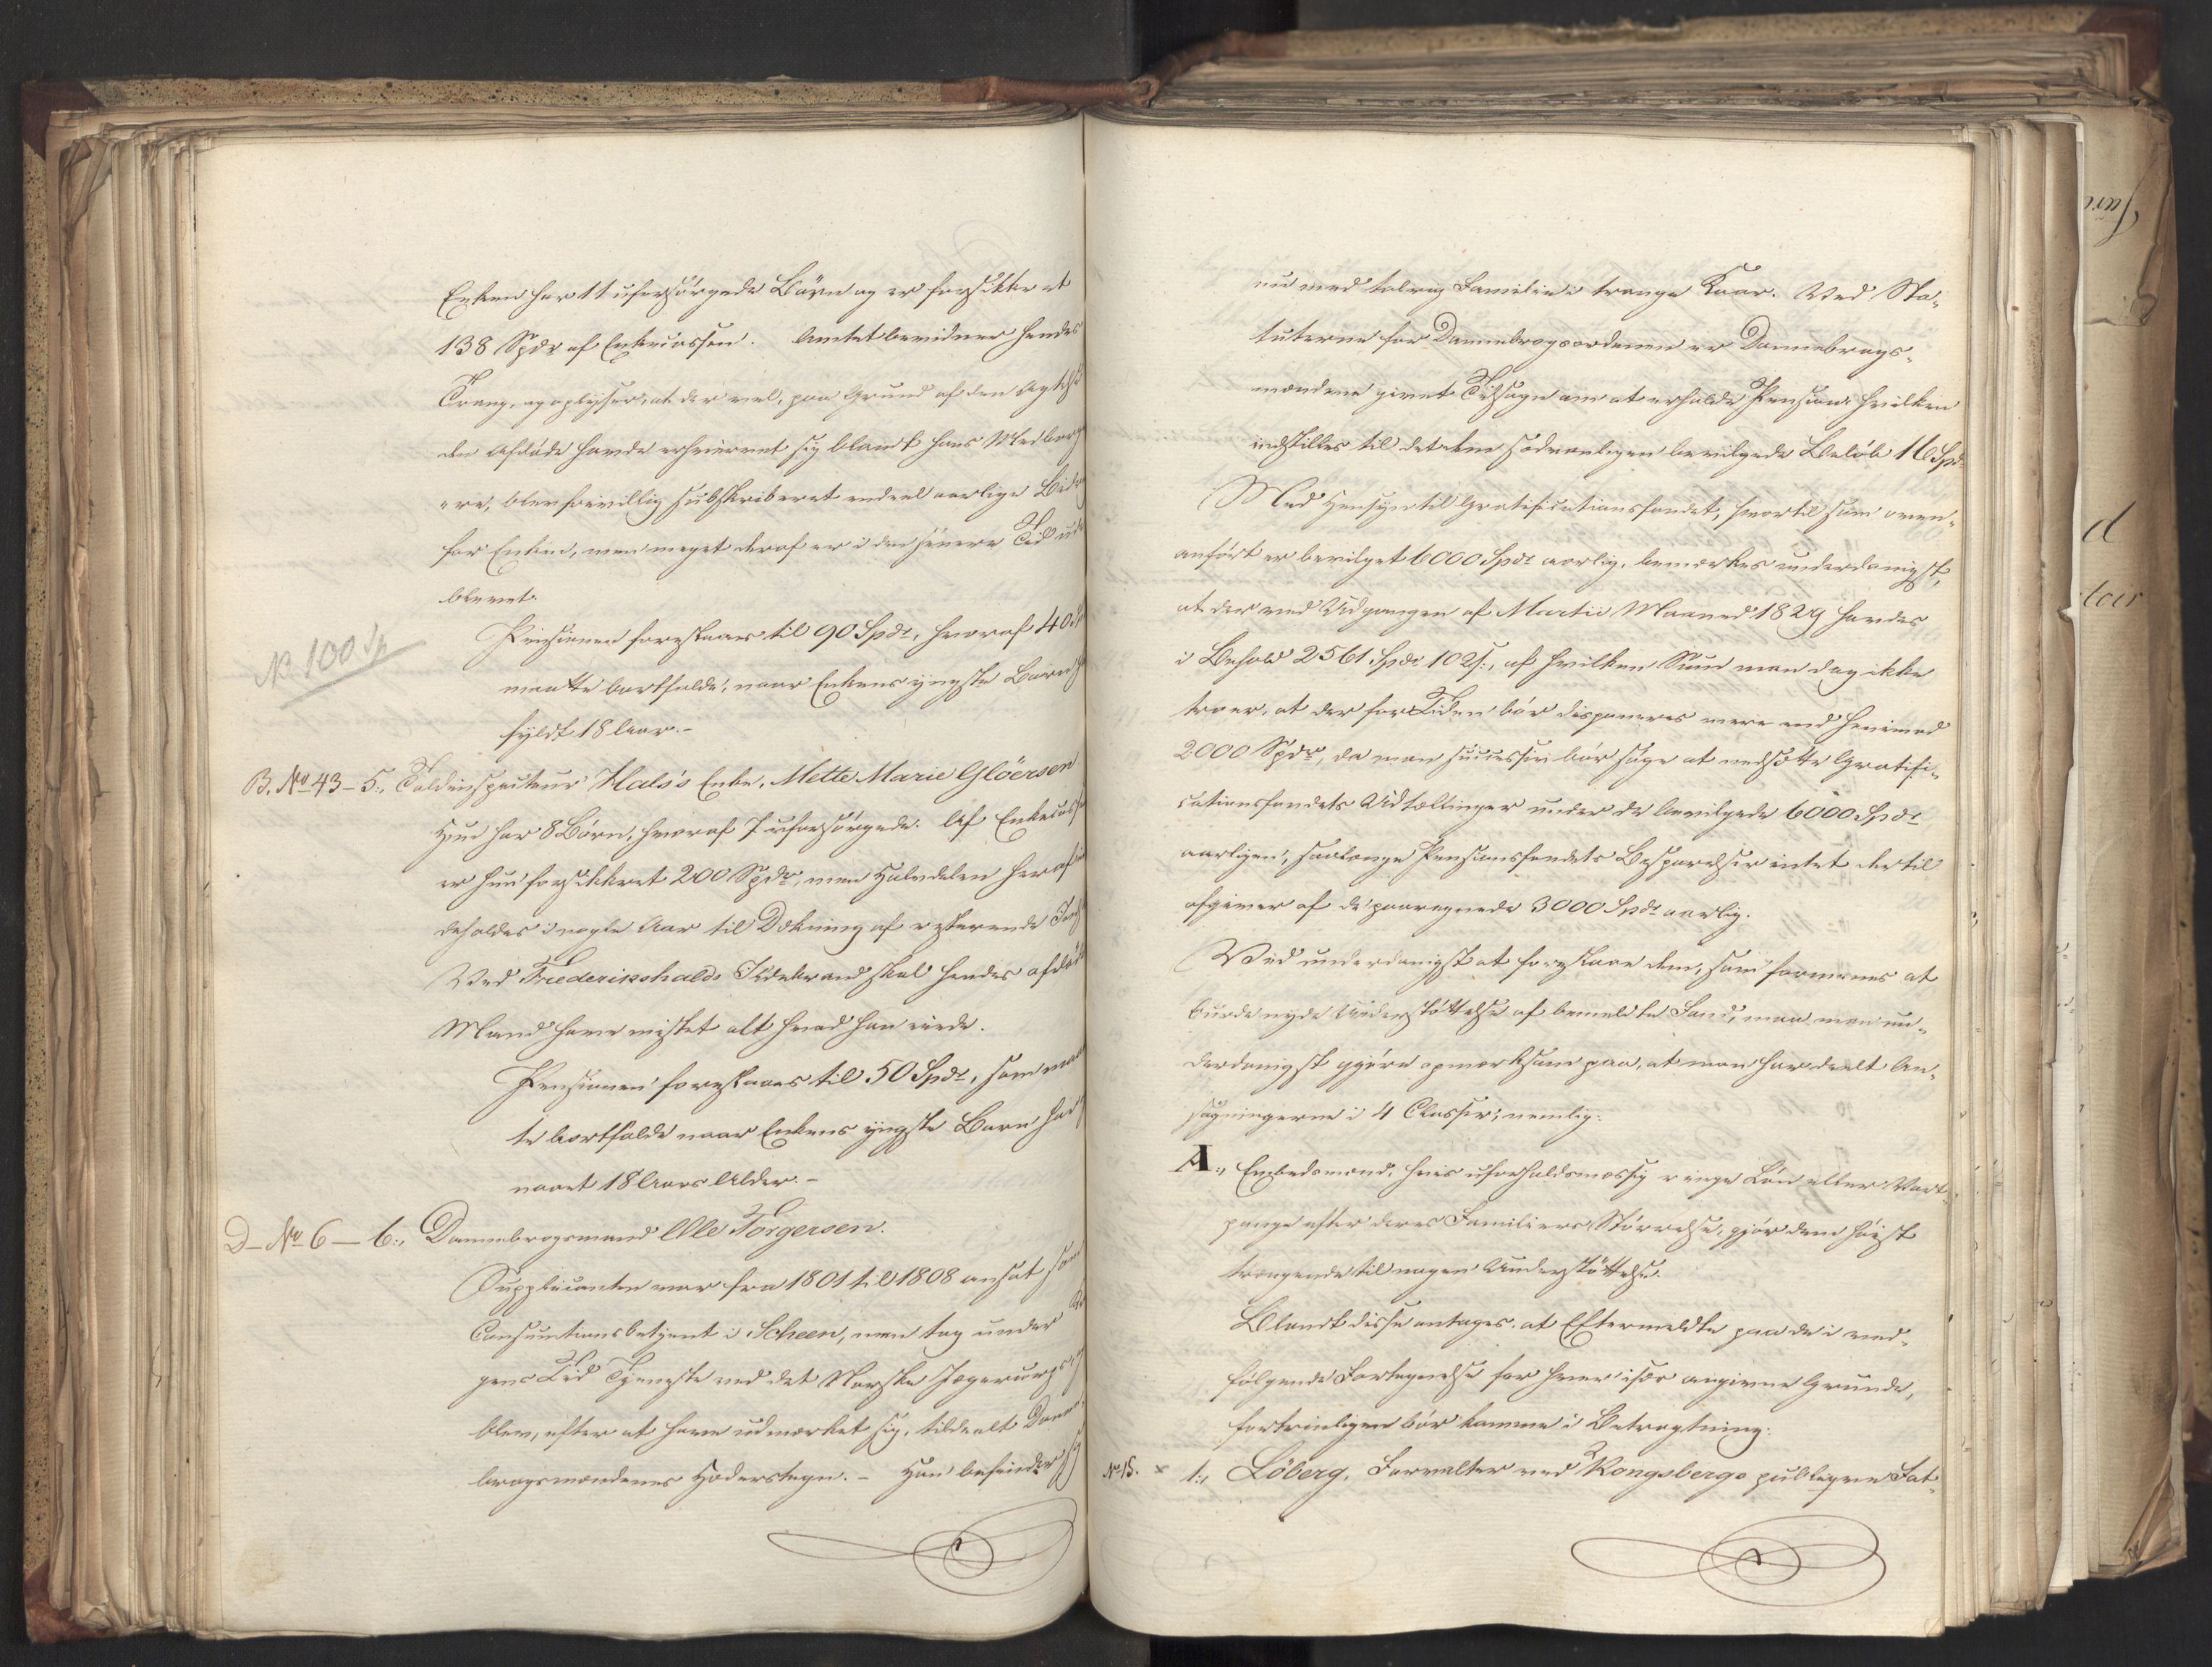 Enken har 11 uforsörgede Börn og er forsikkret
138 Spdr af Enkecassen. Amtet bevidner hendes
Trang, og oplyser, at der vel, paa Grund af den Agtelse
den Afdöde havde erhvervet sig blandt hans Medborg¬
ere, blev frivillig subskriberet endeel aarlige Bidrag
for Enken, men meget deraf er i den senere Tid ude¬
blevet.
NB 100 Sp
Pensionen foreslaaes til 90 Spdr, hvoraf 40 Sp
maatte bortfalde, naar Enkens yngste Barn
fyldt 18 Aar.-
B. No 43 - 5., Toldinspecteur Hals's Enke, Mette Marie Glöersen
Hun har 8 Börn, hvoraf 7 uforsörgede. Af Enkecassen
er hun forsikkret 200 Spdr, men Halvdelen heraf in¬
deholdes i nogle Aar til Dækning af resterende
Ved Friederikshalds Ildebrand skal hendes afdöde
Mand have mistet alt hvad han eiede.
Pensionen foreslaaes til 50 Spdr, som maat¬
te bortfalde naar Enkens yngste Barn har
naaet 18 Aars Alder.-
D- No 6 - 6., Dannebrogsmand Ole Torgersen.
Supplicanten var fra 1801 til 1808 ansat som
Consumtionsbetjent i Scheen, men tog under Kri¬
gens Tid Tjeneste ved det Norske Jægercorps, og
blev, efter at have udmærket sig, tildeelt Danne¬
brogsmændenes Hæderstegn. - Han befinder sig
nu med talrig Familie i trange Kaar. Ved Sta¬
tuterne for Dannebrogsordenen er Dannebrogs¬
mændene givet Tilsagn om at erholde Pension, hvilken
indstilles til det dem sædvanligen bevilgede Belöb 16 Spd
Med Hensyn til Gratificationsfondet, hvortil som oven¬
anfört er bevilget 6000 Spdr aarlig, bemærkes underdanigst,
at der ved Udgangen af Martii Maaned 1829 havdes
i Behold 2561 Spdr 102 s., af hvilken Sum man dog ikke
troer, at der for Tiden bör disponeres mere end henimod
2000 Spdr, da man successiv bör söge at nedsætte Gratifi¬
cationsfondets Udtællinger under de bevilgede 6000 Spdr
aarligen, saalænge Pensionsfondets Besparelser intet dertil
afgiver af de paaregnede 3000 Spdr aarlig.
Ved underdanigst at foreslaae dem, som formenes at
burde nyde Understöttelse af bemeldte Fond, maa man un¬
derdanigst gjöre opmærksom paa, at man har deelt An¬
sögningerne i 4 Classer, nemlig:
A., Embedsmænd, hvis uforholdsmæssig ringe Lön eller Vart¬
penge efter deres Familiers Störrelse, gjör dem höist
trængende til nogen Understöttelse.
Blandt disse antages, at Eftermeldte paa de i ved¬
fölgende Fortegnelse for hver især angivne Grunde,
fortrinligen bör komme i Betragtning:
No 15. x 1., Löberg, Forvalter ved Kongsbergs publiqve Fat¬